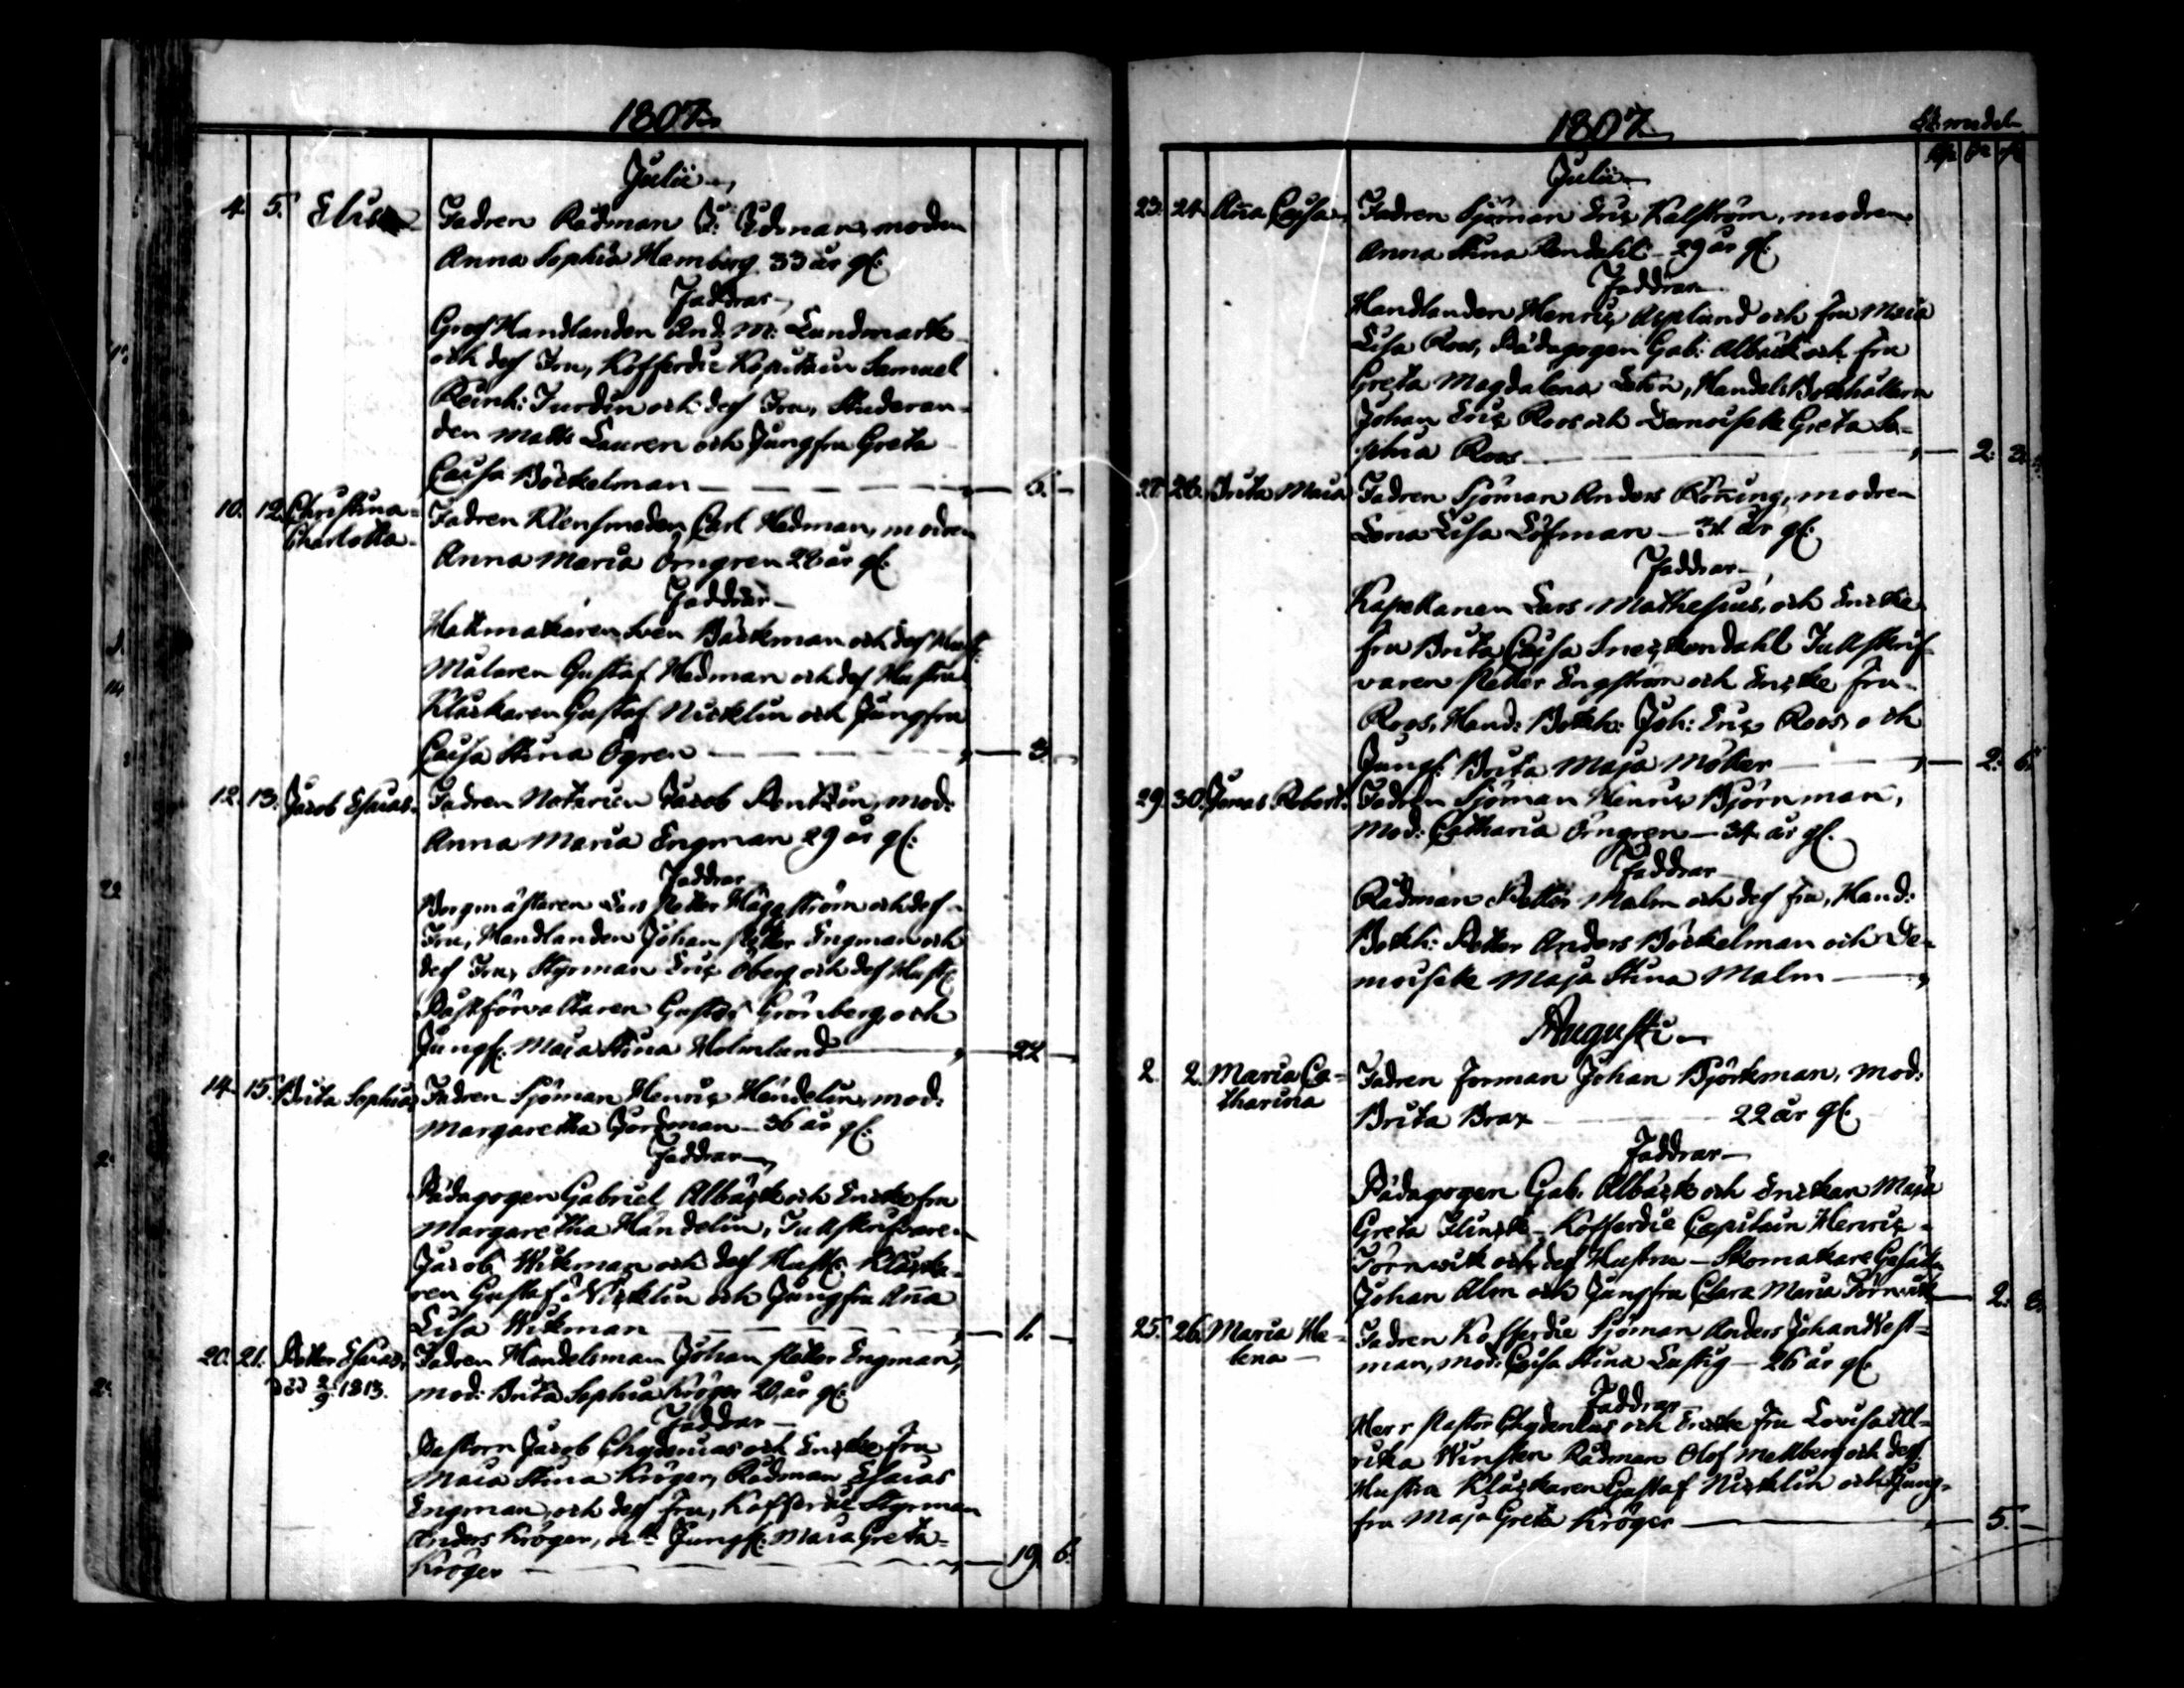 1807
Julii
4. 5. Elisa
Fadren Rådman J: Edman, modren
Anna Sophia Hamberg 33 år gl:
Faddrar
Grosshandlanden And: M: Lundmark
och dess Fru, Kofferdie Kapitain Samuel
Reinh: Turdin och dess Fru, Studeran-
den Matts Lauren och Jungfru Greta
Caisa Böckelman 6.
10. 12. Christina Charlotta
Fadren Klensmeden Carl Hedman, modren
Anna Maria Örngren 22 år gl:
Faddrar
Hattmakaren Sven Bäckman och dess Hust:
Målaren Gustaf Hedman och dess Hustru
Klåckaren Gustaf Nicklin och Jungfru
Caisa Stina Ögren 3.
12. 13. Jacob Esaias
Fadren Notarien Jacob Pentzin, mod:
Anna Maria Engman 29 år gl:
Faddrar
Borgmästaren Lars Petter Häggström och dess
Fru, Handlanden Johan Petter Engman och
dess Fru, Styrman Eric Öberg och dess Hust:
Påstförvaltaren Gustaf Grönberg och
Jungf: Maja Stina Holmlund 24
14. 15. Brita Sophia
Fadren Sjöman Henric Händelin, mod:
Margaretha Jordman 36 år gl:
Faddrar
Pädagogen Gabriel Albäck och Encke fru
Margaretha Händelin, Tullskrifvaren
Jacob Wikman och dess Hust: Klåcka-
ren Gustaf Nicklin och Jungfru Aña
Lisa Wikman 1.
20. 21. Petter Esaias
död 2/9 1813.
Fadren Handelsman Johan Petter Engman,
mod: Brita Sophia Kröger 20 år gl:
Faddrar
Pastorn Jacob Chydenius och Encke fru
Maia Stina Kröger, Rådman Esaias
Engman och dess fru, Kofferdie Styrman
Anders Kröger, och Jungf: Maia Greta
Kröger 19. 6.
1807
Julii
23. 24. Aña Caisa
Fadren Sjöman Eric Kalström, modren
Anna Stina Rendahl 29 år gl:
Faddrar
Handlanden Henric Asplund och fru Maia
Lisa Roos, Pädagogen Gab: Albäck och fru
Greta Magdalena, Handels Bokhållaren
Johan Eric Roos och Demoiselle Greta So-
phia Roos 2.
27. 28. Brita Maia
Fadren Sjöman Anders Röñing, modren
Lena Lisa Löfman 31 år gl:
Faddrar
Kapellanen Lars Mathesius, och Encke
fru Brita Caisa Tullskrif-
varen Petter Engström och Encke fru
Roos, Hand: Bokh: Joh: Eric Roos, och
Jungf: Brita Maja Möller 2. 6.
29. 30. Jonas Robert
Fadren Sjöman Henric Björnman,
Mod: Catharia Örngren 34 år gl:
Faddrar
Rådman Petter Malm och dess fru, Hand:
Bokh: Petter Anders Böckelman och De-
moiselle Maja Stina Malm
Augusti
2. 2. Maria Ca-
tharina
Fadren Forman Johan Björkman, mod:
Brita Brax 22 år gl:
Faddrar
Pädagogen Gab: Albäck och Enckan Maja
Greta Flinck, Kofferdie Capitain Henric
Törnwik och dess Hustru Skomakare Gesällen
Johan Alm och Jungfru Clara Maria Törnwik 2. 8.
25. 26. Maria He-
lena
Fadren Kofferdie Sjöman Anders Johan West-
man, mod: Caisa Stina Lustig 26 år gl:
Faddrar
Herr Pastor Chydenius och Encke fru Lovisa Ul-
rika Winsten Rådman Olof Mellberg och dess
Hustru Klåckaren Gustaf Nicklin och Jung-
fru Maja Greta Kröger 5.